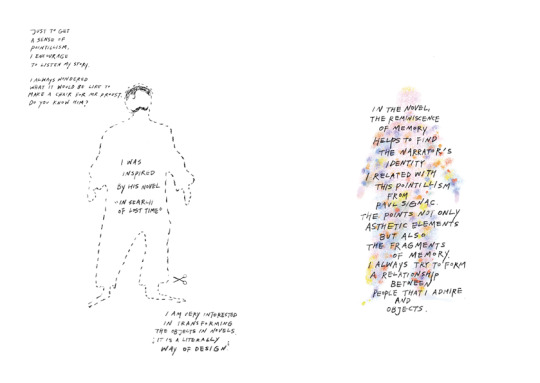 JUST TO GET
A SENSE OF
POINTILLISM,
I ENCOURAGE
TO LISTEN MY STORY.
I ALWAYS WONDERED
WHAT IT WOULD BE LIKE TO
MAKE A CHAIR FOR MR PROUST.
DO YOU KNOW HIM?
I WAS
INSPIRED
BY HIS NOVEL
"IN SEARCH
OF LOST TIME"
I AM VERY INTERESTED
IN TRANSFORMING
THE OBJECTS IN NOVELS.
IT IS A LITERALLY
WAY OF DESIGN.
IN THE NOVEL,
THE REMINISCENCE
OF MEMORY
HELPS TO FIND
THE NARRATOR'S
IDENTITY
I RELATED WITH
THIS POINTILLISM
FROM
PAUL SIGNAC.
THE POINTS NOT ONLY
ASTHETIC ELEMENTS
BUT ALSO
THE FRAGMENTS
OF MEMORY.
I ALWAYS TRY TO FORM
A RELATIONSHIP
BETWEEN
PEOPLE THAT I ADMIRE
AND
OBJECTS.